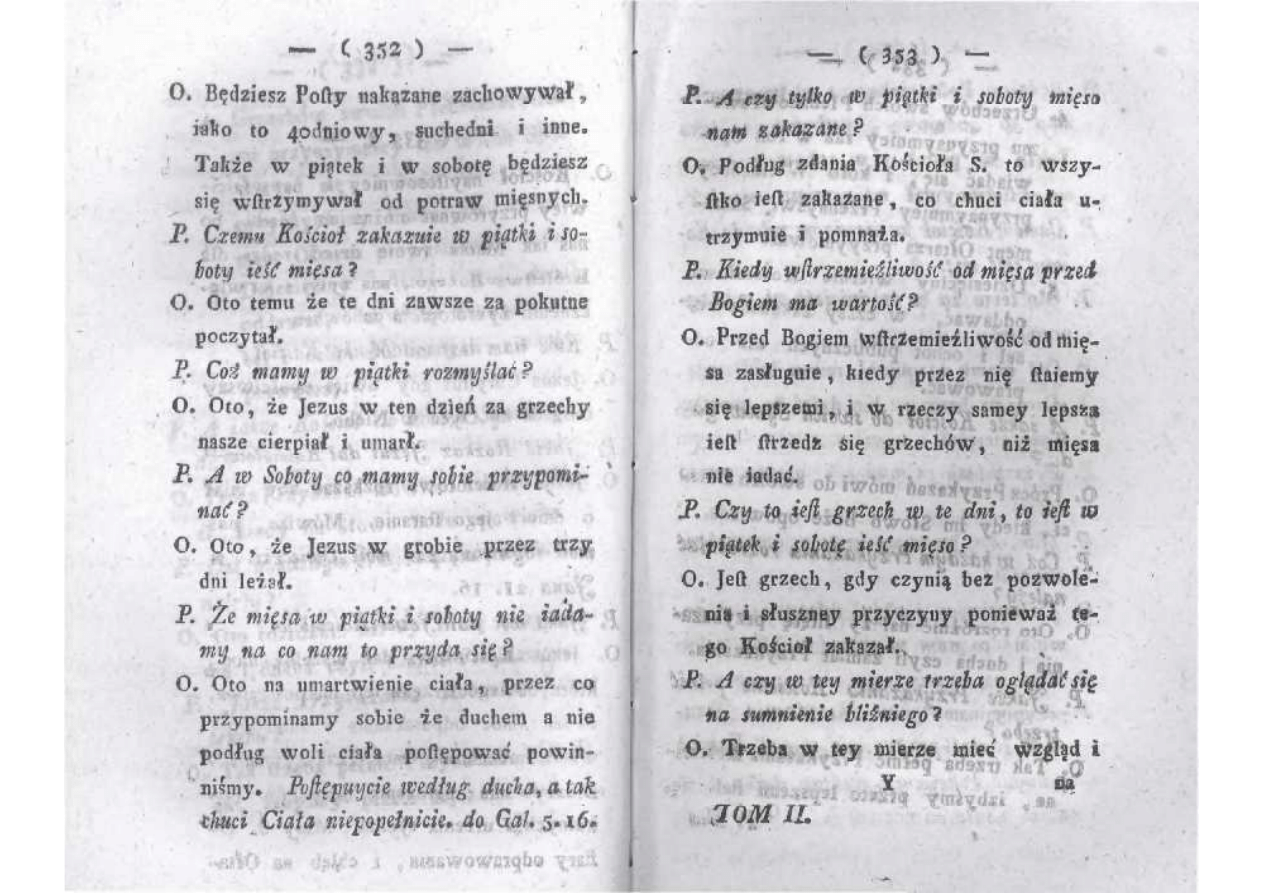 — ( 352 ) —
O. Będziesz Poſty nakazane zachowywał,
iako to 40dniowy, suchedni i inne.
Także w piątek i w sobotę będziesz
się wſtrzymywał od potraw mięsnych.
P. Czemu Kościoł zakazuie w piątki i so-
boty ieść mięsa?
O. Oto temu że te dni zawsze za pokutne
poczytał.
P. Coż mamy w piątki rozmyślać?
O. Oto, że Jezus w ten dzień za grzechy
nasze cierpiał i umarł.
P. A w Soboty co mamy sobie przypomi-
nać?
O. Oto, że Jezus w grobie przez trzy
dni leżał.
P. Że mięsa w piątki i soboty nie iada-
my na co nam to przyda się?
O. Oto na umartwienie ciała, przez co
przypominamy sobie że duchem a nie
podług woli ciała poſtępować powin-
niśmy. Poſtępuycie według ducha, a tak
chuci Ciała niepopełnicie. do Gal. 5. 16.
— ( 353 ) —
P. A czy tylko w piątki i soboty mięso
nam zakazane?
O. Podług zdania Kościoła S. to wszy-
ſtko ieſt zakazane, co chuci ciała u-
trzymuie i pomnaża.
P. Kiedy wſtrzemieźliwość od mięsa przed
Bogiem ma wartość?
O. Przed Bogiem wſtrzemieźliwość od mię-
sa zasługuie, kiedy przez nię ſtaiemy
się lepszemi, i w rzeczy samey lepsza
ieſt ſtrzedz się grzechów, niż mięsa
nie iadać.
P. Czy to ieſt grzech w te dni, to ieſt w
piątek i sobotę ieść mięso?
O. Jeſt grzech, gdy czynią bez pozwole-
nia i słuszney przyczyny ponieważ te-
go Kościoł zakazał.
P. A czy w tey mierze trzeba oglądać się
na sumnienie bliźniego?
O. Trzeba w tey mierze mieć wzgląd i
Y na
TOM II.